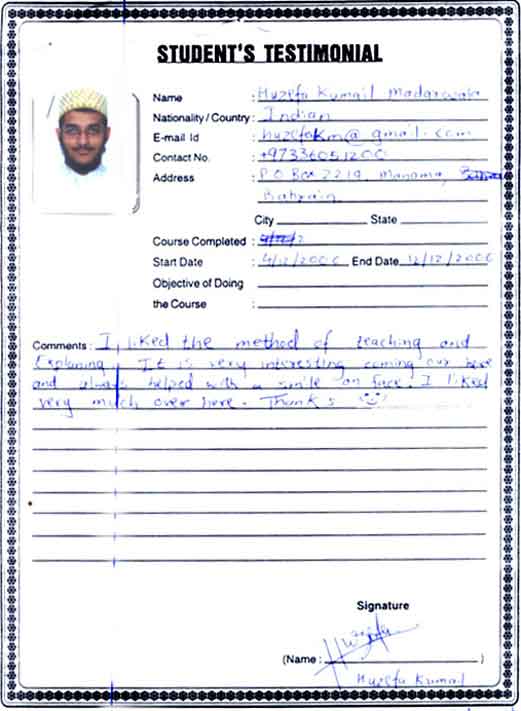 STUDENT'S TESTIMONIAL
Name : Huzefa Kumail Madarwala
Nationality / Country : Indian
E-mail Id : huzefakm@gmail.com
Contact No. : +97336051200
Address : P.O Box 2219, Manama,
Bahrain
City State
Course Completed :
Start Date : 4/12/2006 End Date 12/12/2006
Objective of Doing
the Course :
Comments : I liked the method of teaching and
Explaning. It is very interesting coming over here
and always helped with a smile on face. I liked
very much over here. Thanks
Signature
Huzefa
(Name : )
Huzefa Kumail